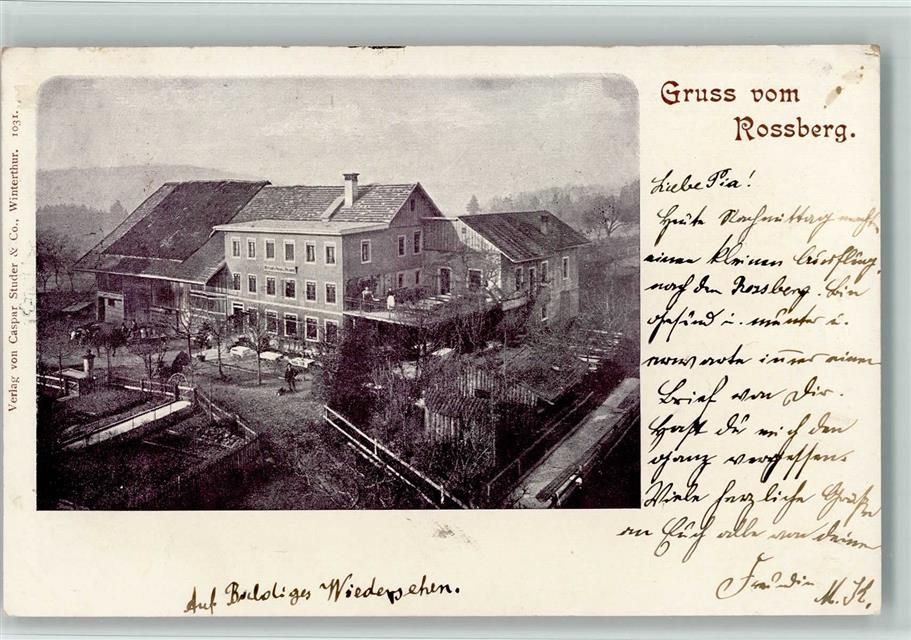 Gruss vom
Rossberg.
Verlag von Caspar Studer & Co., Winterthur. 1031.
Liebe Pia!
Heute Nachmittag macht
einen kleinen Ausflug
nach dem Rossberg. Bin
gesund u. munter u.
erwarte immer einen
Brief von Dir.
Hast du mich denn
ganz vergessen.
Viele herzliche Grüsse
an Euch alle von deine
Freundin
M. H.
Auf Baldiges Wiedersehen.